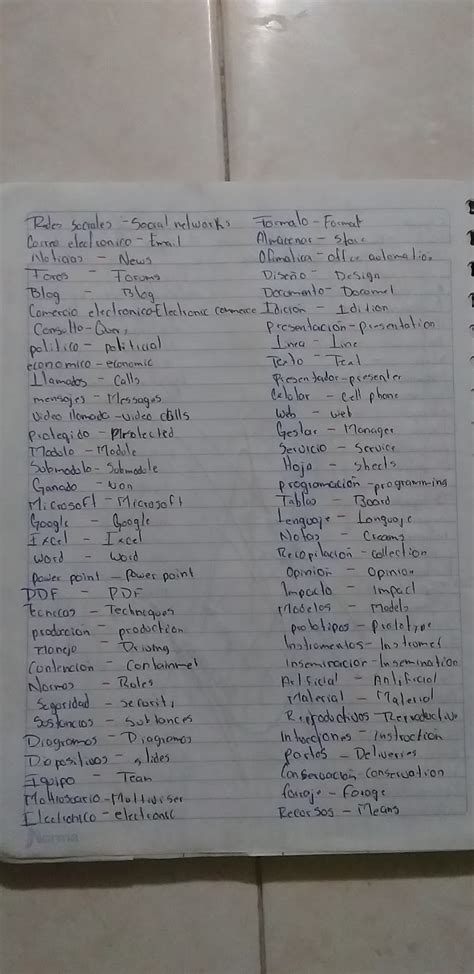 Redes sociales - Social networks
Correo electronico - Email
Noticias - News
Foros - Forums
Blog - Blog
Comercio electronico - Electronic commerce
Consulta - Query
politico - politicial
economico - economic
Llamados - Calls
mensajes - Messages
Video llamado - video calls
Protegido - Protected
Modulo - Module
Submodulo - Submodule
Ganado - Won
Microsoft - Microsoft
Google - Google
Excel - Excel
word - word
power point - power point
PDF - PDF
Tecnicas - Techniques
produccion - production
manejo - Driving
Contencion - Containmet
Normas - Roles
Seguridad - security
Sustancias - Substances
Diagramas - Diagramas
Diapositivas - slides
Equipo - Team
Multiusuario - Multiuser
Electronico - electronic
norma
Formato - Format
Almacenar - Store
Ofimatica - office automation
Diseño - Design
Documento - Documet
Edición - Edition
Presentación - presentation
Linea - Line
Texto - Text
Presentador - presenter
Celular - cell phone
Web - web
Gestor - Manager
Servicio - Service
Hoja - sheets
programación - programming
Tablas - Board
Lenguaje - Language
Notas - Creams
Recopilación - collection
Opinion - Opinion
Impacto - Impact
Modelos - Models
prototipos - Prototype
Instrumentos - Instrumet
Inseminacion - Insemination
Artificial - Artificial
Material - Material
Reproductivos - Reproductive
Instrucciones - Instruction
partos - Deliveries
Conservación - Conservation
Forraje - Forage
Recursos - Means